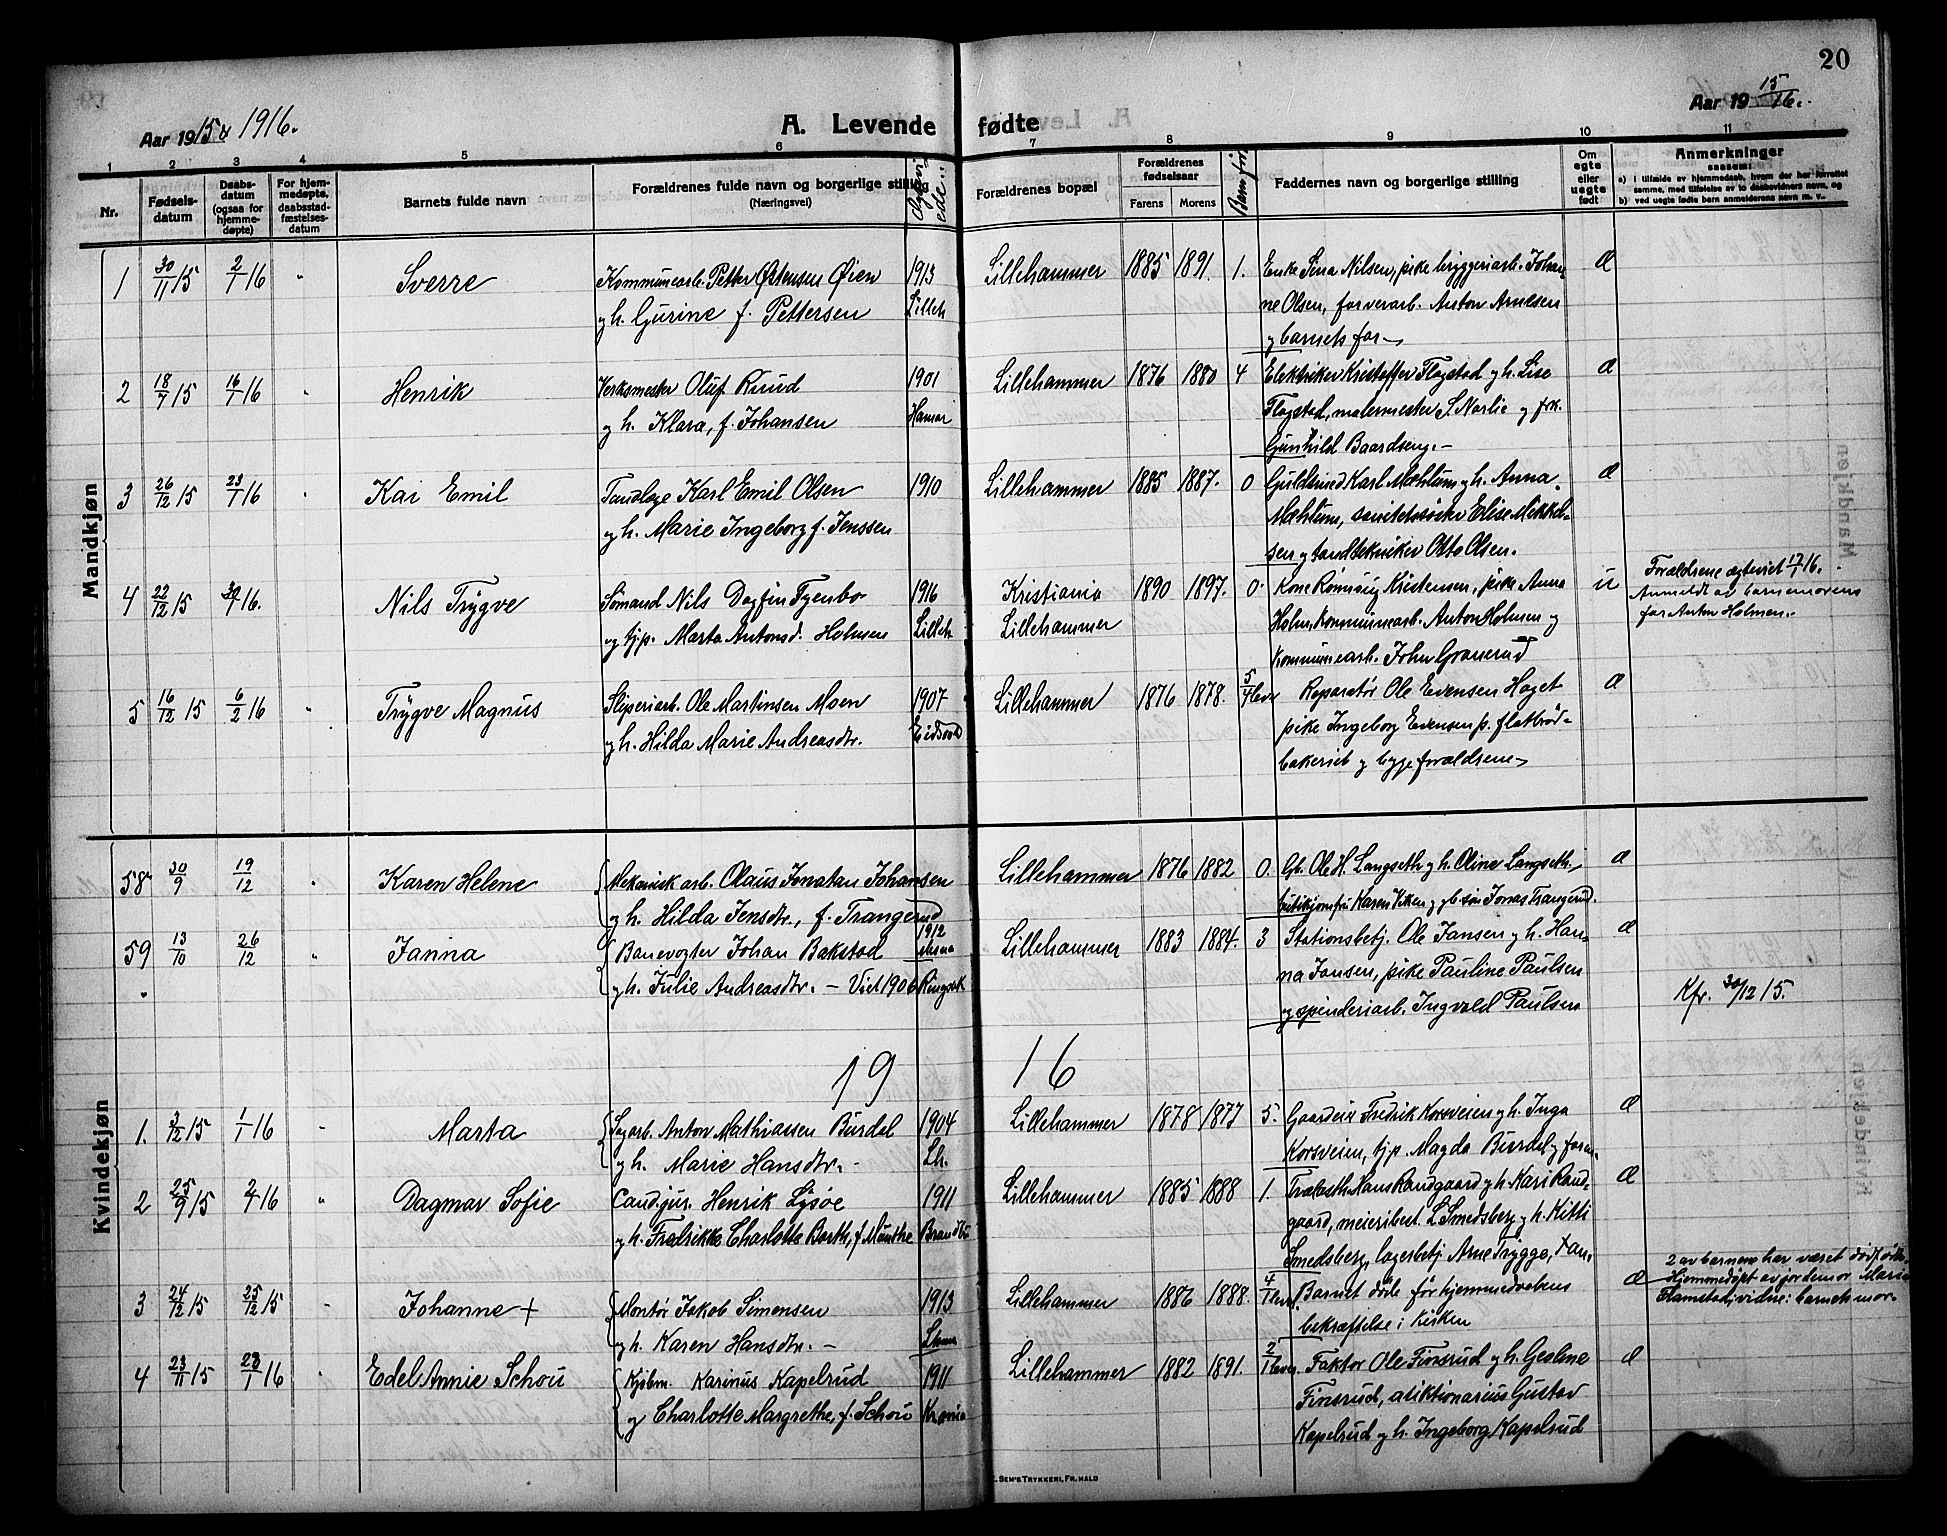 20
Aar 1915 & 1916.
A. Levende
fødte
Aar 19 15/16.
1 2 3 4 5 6 7 8 9 10 11
Nr.
Fødsels-
datum
Daabs-
datum
(ogsaa for
hjemme-
døpte)
For hjem-
medøpte,
daabsstad-
fæstelses-
datum
Barnets fulde navn
Forældrenes fulde navn og borgerlige stilling
(Næringsvei)
Forældrenes bopæl
Forældrenes
fødselsaar
Farens Morens
Barn før
Faddernes navn og borgerlige stilling
Om
egte
eller
uegte
født
Anmerkninger
saasom:
a) i tilfælde av hjemmedaab, hvem der har forrettet
samme, med tilføielse av to daabsvidners navn, og
b) ved uegte fødte barn anmelderens navn m. v.
Mandkjøn
1 30/11 15 2/1 16 " Sverre
Kommunearb. Petter Østensen Øien
og h. Gurine f. Pettersen
1913
Lilleh
Lillehammer 1885 1891. 1.
Enke Sina Nilsen, pike bryggeriarb. Johan-
ne Olsen, farverarb. Anton Arnesen
og barnets far
2 18/7 15 16/1 16 " Henrik
Verksmester Oluf Ruud
og h. Klara, f. Johansen
1901
Hamar
Lillehammer 1876 1880 4
Elektriker Kristoffer Flagstad og h. Lise
Flagstad, malermester S. Norlie og frk.
Gunhild Baardseng.
3 26/12 15 23/1 16 " Kai Emil
Tandlæge Karl Emil Olsen
og h. Marie Ingeborg f. Jenssen
1910
Lillehammer 1885 1887. 0
Guldsmed Karl Mæhlum og h. Anna
Mæhlum, Elise Mikkel-
sen og tandtekniker Otto Olsen.
4 22/12 15 30/1 16. Nils Trygve
Sømand Nils Dagfin
og tjp. Marta Antonsd. Holmen
1916
Lilleh.
Kristiania
Lillehammer
1890 1897. 0.
Kone Kristensen, pike Anna
Holm, kommunearb. Anton Holmen og
kommunearb. John Granerud
u
Forældrene egteviet 17/1 16.
Anmeldt av barnemorens
far Anton Holmen.
5 16/12 15 6/2 16 " Trygve Magnus
Sliperiarb. Ole Martinsen Moen
og h. Hilda Marie Andreasdtr.
1907
Eidsvold
Lillehammer 1876 1878. 5/4 lever
Reparatør Ole Evensen Haget
pike Ingeborg Evensen p. flatbrød-
bakeriet og begge forældrene
58 30/9 19/12 " Karen Helene
Mekanisk arb. Olaus Jonatan Johansen
og h. Hilda Jensdtr., f. Trangerud
1912
Lillehammer 1876 1882 0.
Gb. Ole H. Langseth og h. Oline Langseth,
butikjomfru Karen Viken og gb. søn Jonas Trangerud.
59 13/10 26/12 " Janna
Banevogter Johan Bakstad
og h. Julie Andreasdtr. - Viet 1906 Ringsak
Lillehammer 1883 1884. 3
Stationsbetj. Ole Jansen og h. Han-
na Jansen, pike Pauline Paulsen
og spinderiarb. Ingvald Paulsen
Kfr. 30/12 15.
19 16
Kvindekjøn
1. 3/12 15 1/1 16 Marta
Sagarb. Anton Mathiassen Burdal
og h. Marie Hansdtr. -
1904
Lh.
Lillehammer 1878 1877 5.
Gaardeier Fredrik Korsveien og h. Inga
Korsveien, tjp. Magda Burdal og faren
2 25/9 15 2/1 16 " Dagmar Sofie
Cand. jur. Henrik Lysøe
og h. Fredrikke Charlotte Barth, f. Munthe
1911
Brandbu
Lillehammer 1885 1888 1.
Hans Randgaard og h. Kari Rand-
gaard, meieribest. L. Smedsberg og h. Kitti
Smedsberg, lagerbetj. Arne Trygge,
3 24/12 15 25/12 15 Johanne +
Montør Jakob Simensen
og h. Karen Hansdtr. -
1913
Lillehammer 1886 1888. 4/1 lever
Barnet døde før hjemmedaabens
bekræftelse i kirken
2 av barnene har været dødfødte.
Hjemmedøpt av jordemor Marie
Flamstad, vidne: barnets mor.
4 23/11 15 23/1 16 Edel Annie Schou
Kjøbm. Karinus Kapelrud
og Charlotte Margrethe, f. Schou
1911
Krania
Lillehammer 1882 1891. 2/1 lever
Faktor Ole Finsrud og h. Gesine
Finsrud, auktionarius Gustav
Kapelrud og h. Ingeborg Kapelrud
E. SEM'S TRYKKERI, FR.HALD